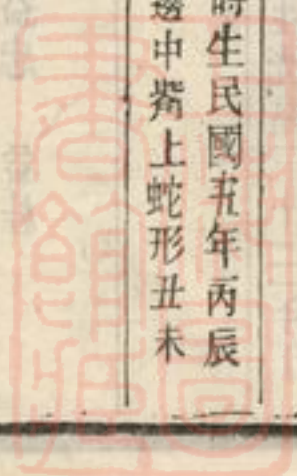 時生民國五年丙辰
邊中觜上蛇形丑未